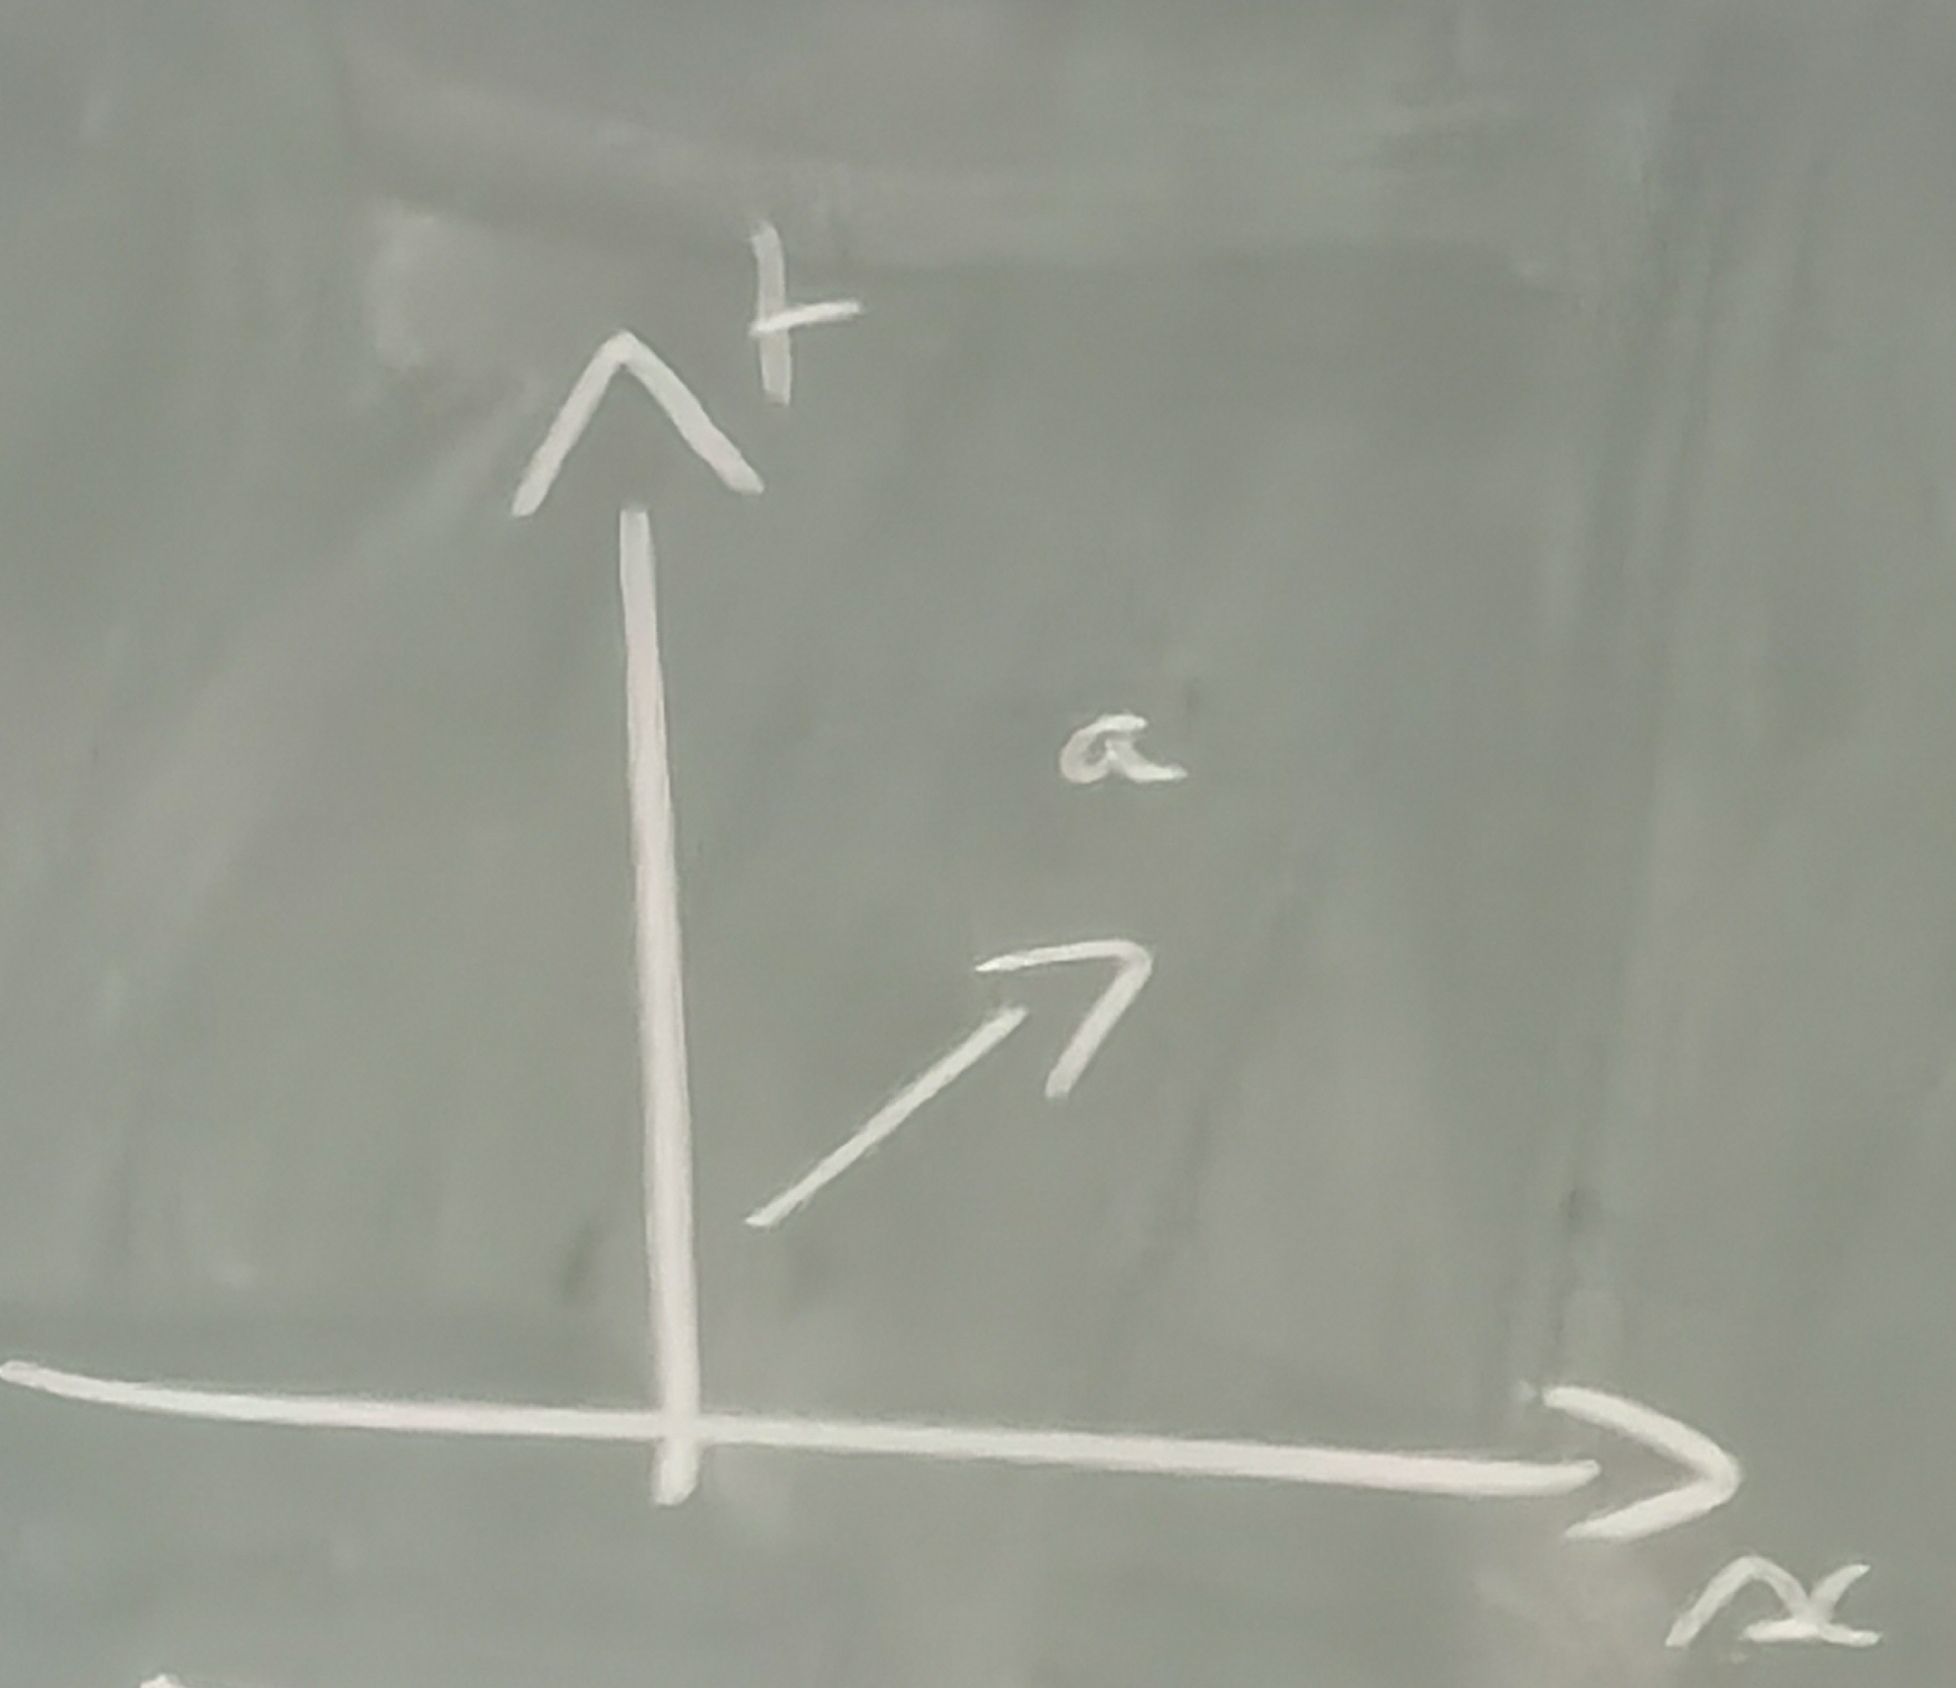 t
a
x